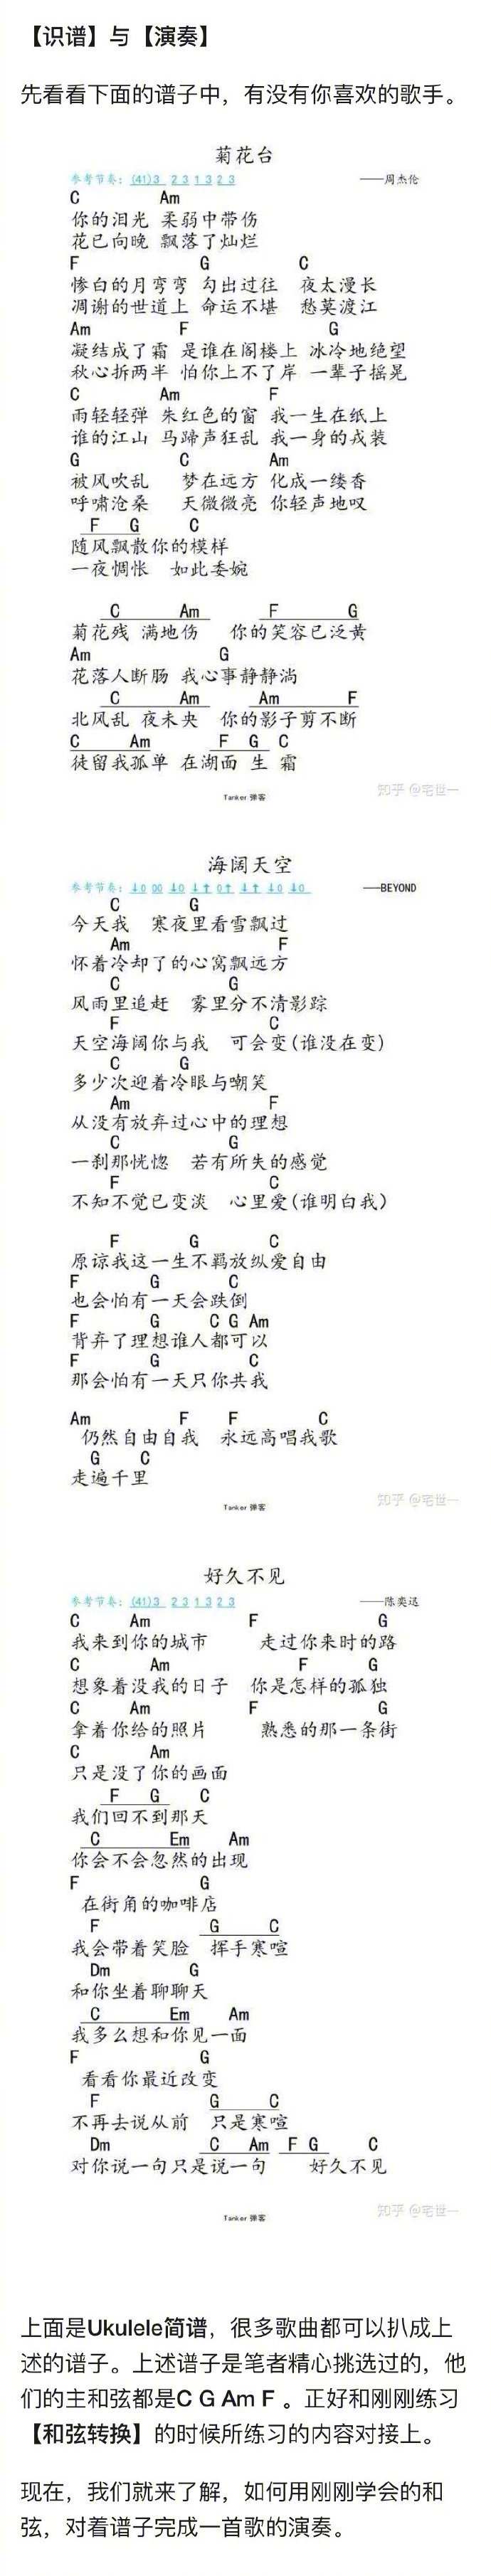 【识谱】与【演奏】
先看看下面的谱子中，有没有你喜欢的歌手。
菊花台
参考节奏：(41)3 23 1323 ——周杰伦
C Am
你的泪光 柔弱中带伤
花已向晚 飘落了灿烂
F G C
惨白的月弯弯 勾出过往 夜太漫长
凋谢的世道上 命运不堪 愁莫渡江
Am F G
凝结成了霜 是谁在阁楼上 冰冷地绝望
秋心拆两半 怕你上不了岸 一辈子摇晃
C Am F
雨轻轻弹 朱红色的窗 我一生在纸上
谁的江山 马蹄声狂乱 我一身的戎装
G C Am
被风吹乱 梦在远方 化成一缕香
呼啸沧桑 天微微亮 你轻声地叹
F G C
随风飘散你的模样
一夜惆怅 如此委婉
C Am F G
菊花残 满地伤 你的笑容已泛黄
Am G
花落人断肠 我心事静静淌
C Am Am F
北风乱 夜未央 你的影子剪不断
C Am F G C
徒留我孤单 在湖面 生 霜
知乎 @宅世一
Tanker 弹客
海阔天空
参考节奏：↓0 00 ↓0 ↓↑ 0↑ ↓↑ ↓0 ↓0 ——BEYOND
C G
今天我 寒夜里看雪飘过
Am F
怀着冷却了的心窝飘远方
C G
风雨里追赶 雾里分不清影踪
F C
天空海阔你与我 可会变(谁没在变)
C G
多少次迎着冷眼与嘲笑
Am F
从没有放弃过心中的理想
C G
一刹那恍惚 若有所失的感觉
F C
不知不觉已变淡 心里爱(谁明白我)
F G C
原谅我这一生不羁放纵爱自由
F G C
也会怕有一天会跌倒
F G C G Am
背弃了理想谁人都可以
F G C
那会怕有一天只你共我
Am F F C
仍然自由自我 永远高唱我歌
G C
走遍千里
知乎 @宅世一
Tanker 弹客
好久不见
参考节奏：(41)3 23 1323 ——陈奕迅
C Am F G
我来到你的城市 走过你来时的路
C Am F G
想象着没我的日子 你是怎样的孤独
C Am F G
拿着你给的照片 熟悉的那一条街
C Am
只是没了你的画面
F G C
我们回不到那天
C Em Am
你会不会忽然的出现
F G
在街角的咖啡店
F G C
我会带着笑脸 挥手寒喧
Dm G
和你坐着聊聊天
C Em Am
我多么想和你见一面
F G
看看你最近改变
F G C
不再去说从前 只是寒喧
Dm C Am F G C
对你说一句只是说一句 好久不见
知乎 @宅世一
Tanker 弹客
上面是Ukulele简谱，很多歌曲都可以扒成上
述的谱子。上述谱子是笔者精心挑选过的，他
们的主和弦都是C G Am F 。正好和刚刚练习
【和弦转换】的时候所练习的内容对接上。
现在，我们就来了解，如何用刚刚学会的和
弦，对着谱子完成一首歌的演奏。